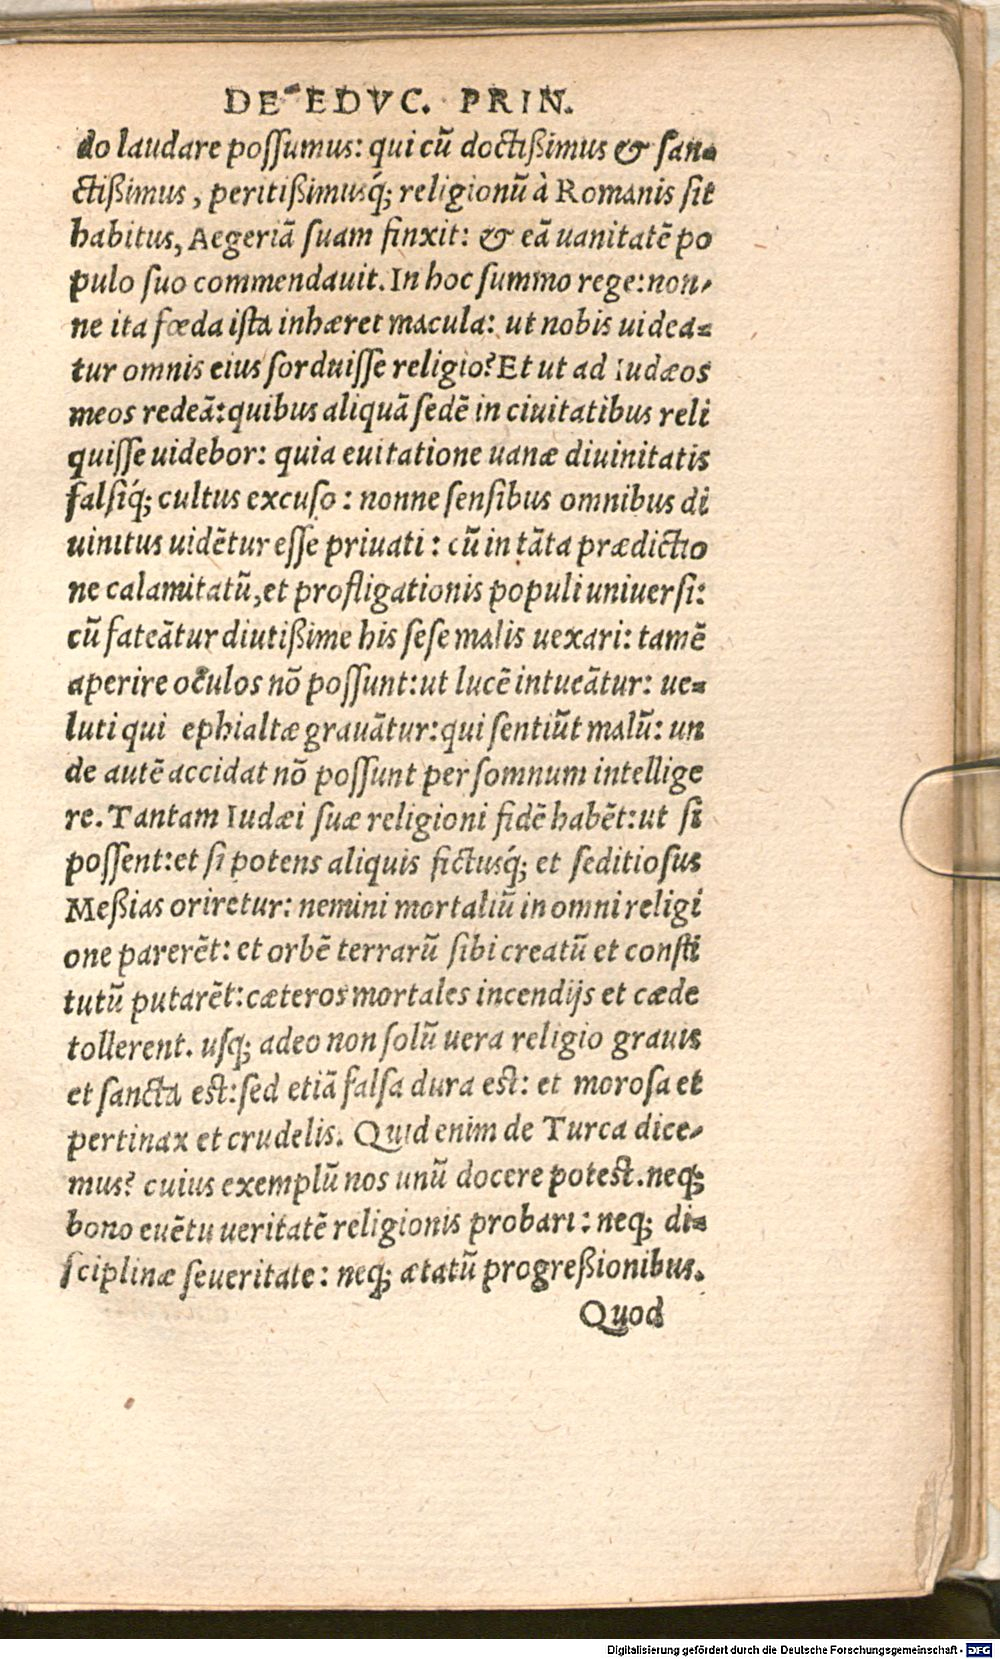 DE EDVC. PRIN.
do laudare possumus: qui cũ doctißimus & san-
ctißimus, peritißimusq́; religionũ à Romanis sit
habitus, Aegeriã suam finxit: & eã uanitatẽ po
pulo suo commendauit. In hoc summo rege: non-
ne ita fœda ista inhæret macula: ut nobis uidea-
tur omnis eius sorduisse religio? Et ut ad Iudæos
meos redeã: quibus aliquã sedẽ in ciuitatibus reli
quisse uidebor: quia euitatione uanæ diuinitatis
falsiq́; cultus excuso: nonne sensibus omnibus di
uinitus uidẽtur esse priuati: cũ in tãta prædictio
ne calamitatũ, et profligationis populi uniuersi:
cũ fateãtur diutißime his sese malis uexari: tamẽ
aperire oculos nõ possunt: ut lucẽ intueãtur: ue-
luti qui ephialtæ grauãtur: qui sentiũt malũ: un
de autẽ accidat nõ possunt per somnum intellige
re. Tantam Iudæi suæ religioni fidẽ habẽt: ut si
possent: et si potens aliquis fictusq́; et seditiosus
Meßias oriretur: nemini mortaliũ in omni religi
one parerẽt: et orbẽ terrarũ sibi creatũ et consti
tutũ putarẽt: cæteros mortales incendijs et cæde
tollerent. usq; adeo non solũ uera religio grauis
et sancta est: sed etiã falsa dura est: et morosa et
pertinax et crudelis. Quid enim de Turca dice-
mus? cuius exemplũ nos unũ docere potest. neq;
bono euẽtu ueritatẽ religionis probari: neq; di-
sciplinæ seueritate: neq; ætatũ progreßionibus.
Quod
Digitalisierung gefördert durch die Deutsche Forschungsgemeinschaft - DFG